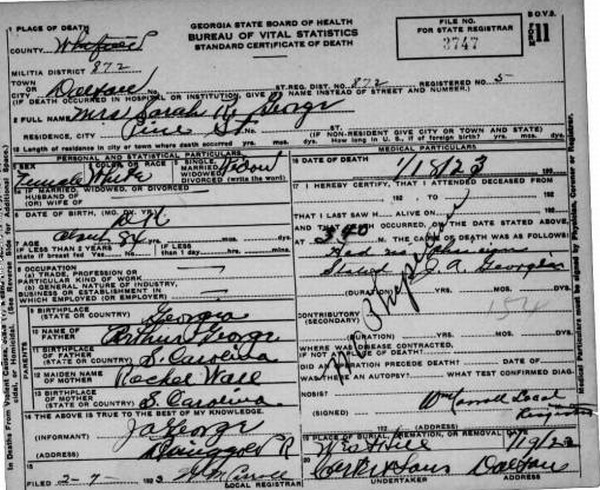 1 PLACE OF DEATH
COUNTY Whitfield
MILITIA DISTRICT 872
TOWN OR CITY Dalton No. ST. REG. DIST. NO. 872 REGISTERED NO. 5
(IF DEATH OCCURRED IN HOSPITAL OR INSTITUTION, GIVE ITS NAME INSTEAD OF STREET AND NUMBER.)
GEORGIA STATE BOARD OF HEALTH
BUREAU OF VITAL STATISTICS
STANDARD CERTIFICATE OF DEATH
FILE NO.
FOR STATE REGISTRAR
3747
B.O.V.S.
FORM 11
2 FULL NAME Mrs Sarah George
RESIDENCE, CITY Pine St. No. ST. (IF NON-RESIDENT GIVE CITY OR TOWN AND STATE)
Length of residence in city or town where death occurred yrs. mos. ds. How long in U. S., if of foreign birth? yrs. mos. ds.
PERSONAL AND STATISTICAL PARTICULARS
3 SEX Female
4 COLOR OR RACE White
5 SINGLE MARRIED WIDOWED DIVORCED (write the word) Widow
IF MARRIED, WIDOWED OR DIVORCED
HUSBAND OF
(OR) WIFE OF
6 DATE OF BIRTH, (MO. DY. YR.) D K
7 AGE About 84 yrs. mos. dys.
IF LESS THAN 2 YEARS state if breast fed Yes No
IF LESS than 1 day hrs. min.
8 OCCUPATION
(A) TRADE, PROFESSION OR PARTICULAR KIND OF WORK
(B) GENERAL NATURE OF INDUSTRY, BUSINESS OR ESTABLISHMENT IN WHICH EMPLOYED (OR EMPLOYER)
PARENTS
9 BIRTHPLACE (STATE OR COUNTRY) Georgia
10 NAME OF FATHER Arthur George
11 BIRTHPLACE OF FATHER (STATE OR COUNTRY) S. Carolina
12 MAIDEN NAME OF MOTHER Rachel Wall
13 BIRTHPLACE OF MOTHER (STATE OR COUNTRY) S. Carolina
14 THE ABOVE IS TRUE TO THE BEST OF MY KNOWLEDGE.
(INFORMANT) J A George
Ringgold R
15
FILED 2-7- 1923 Wm Carroll
LOCAL REGISTRAR
MEDICAL PARTICULARS
16 DATE OF DEATH 1/18/23 192
17 I HEREBY CERTIFY, THAT I ATTENDED DECEASED FROM
192 , TO 192
THAT I LAST SAW H ALIVE ON 192
AND THAT DEATH OCCURRED, ON THE DATE STATED ABOVE,
AT 340 M. THE CAUSE OF DEATH WAS AS FOLLOWS:
Had no physician
J. A. George
(DURATION) YRS. MOS. DYS.
CONTRIBUTORY (SECONDARY) 154
(DURATION) YRS. MOS. DYS.
No Physician
WHERE WAS DISEASE CONTRACTED, IF NOT AT PLACE OF DEATH?
DID AN OPERATION PRECEDE DEATH? DATE OF
WAS THERE AN AUTOPSY? WHAT TEST CONFIRMED DIAGNOSIS?
(SIGNED) Wm Carroll Local
Registrar
192 (ADDRESS)
19 PLACE OF BURIAL, CREMATION, OR REMOVAL DATE
West Hill 1/19/23
20 UNDERTAKER
Sons Dalton